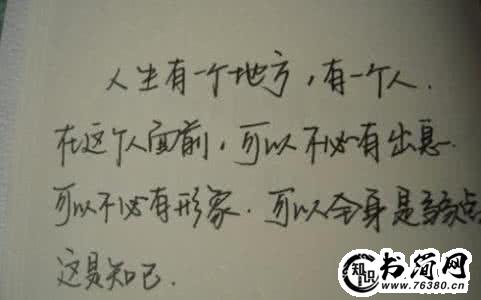 人生有一个地方，有一个人.
在这个人面前，可以不必有出息.
可以不必有形象.可以全身是缺点
这是知己.
知识
书简网
www.76380.cn